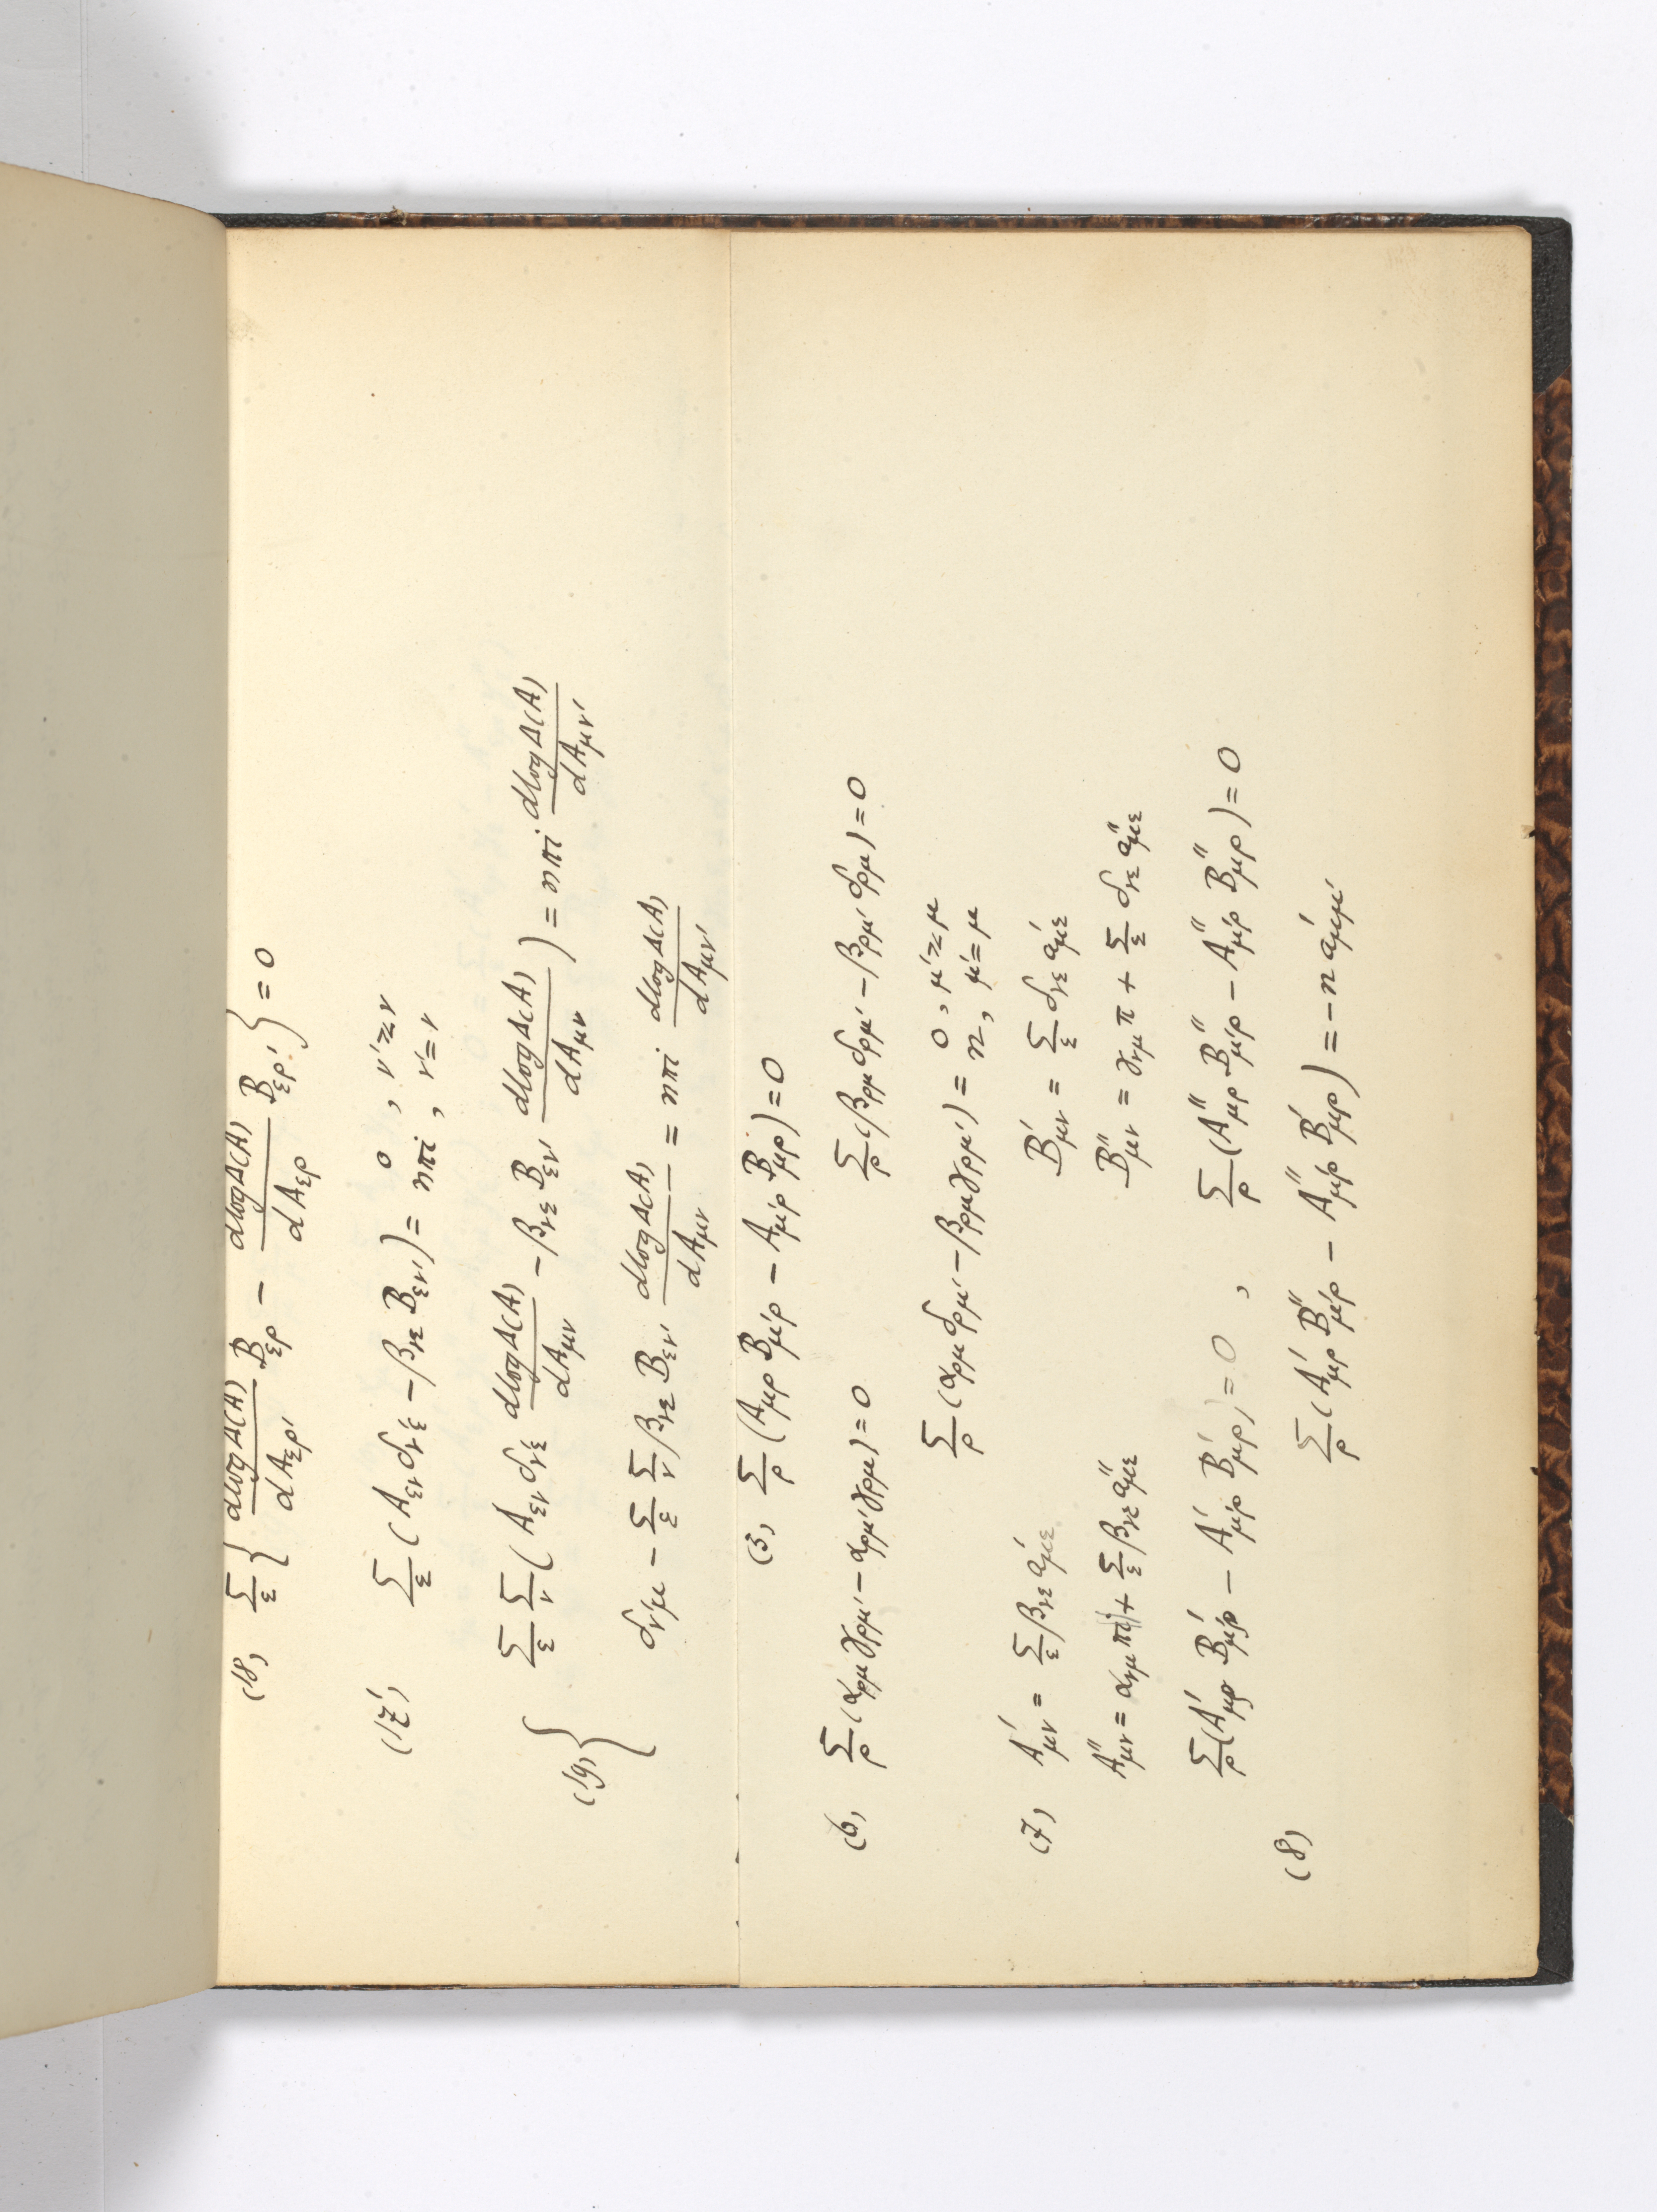 (18) Σ_ε { dlogΔ(A)/dA_ερ' B_ερ − dlogΔ(A)/dA_ερ B_ερ' } = 0
(17') Σ_ε (A_εν δ_ν'ε − β_νε B_εν') = 0, ν'≷ν
nπi, ν'=ν
(19) { Σ_ε Σ_ν (A_εν δ_ν'ε dlogΔ(A)/dA_μν − β_νε B_εν' dlogΔ(A)/dA_μν) = nπi dlogΔ(A)/dA_μν'
δ_ν'μ − Σ_ε Σ_ν β_νε B_εν' dlogΔ(A)/dA_μν = nπi dlogΔ(A)/dA_μν'
(5) Σ_ρ (A_μρ B_μ'ρ − A_μ'ρ B_μρ) = 0
(6) Σ_ρ (α_ρμ γ_ρμ' − α_ρμ' γ_ρμ) = 0 Σ_ρ (β_ρμ δ_ρμ' − β_ρμ' δ_ρμ) = 0
Σ_ρ (α_ρμ δ_ρμ' − β_ρμ γ_ρμ') = 0, μ'≷μ
n, μ'=μ
(7) A'_μν = Σ_ε β_νε a'_με B'_μν = Σ_ε δ_νε a'_με
A''_μν = α_νμ πi + Σ_ε β_νε a''_με B''_μν = γ_νμ π + Σ_ε δ_νε a''_με
(8) Σ_ρ (A'_μρ B'_μ'ρ − A'_μ'ρ B'_μρ) = 0 , Σ_ρ (A''_μρ B''_μ'ρ − A''_μ'ρ B''_μρ) = 0
Σ_ρ (A'_μρ B''_μ'ρ − A''_μ'ρ B'_μρ) = −n a'_μμ'